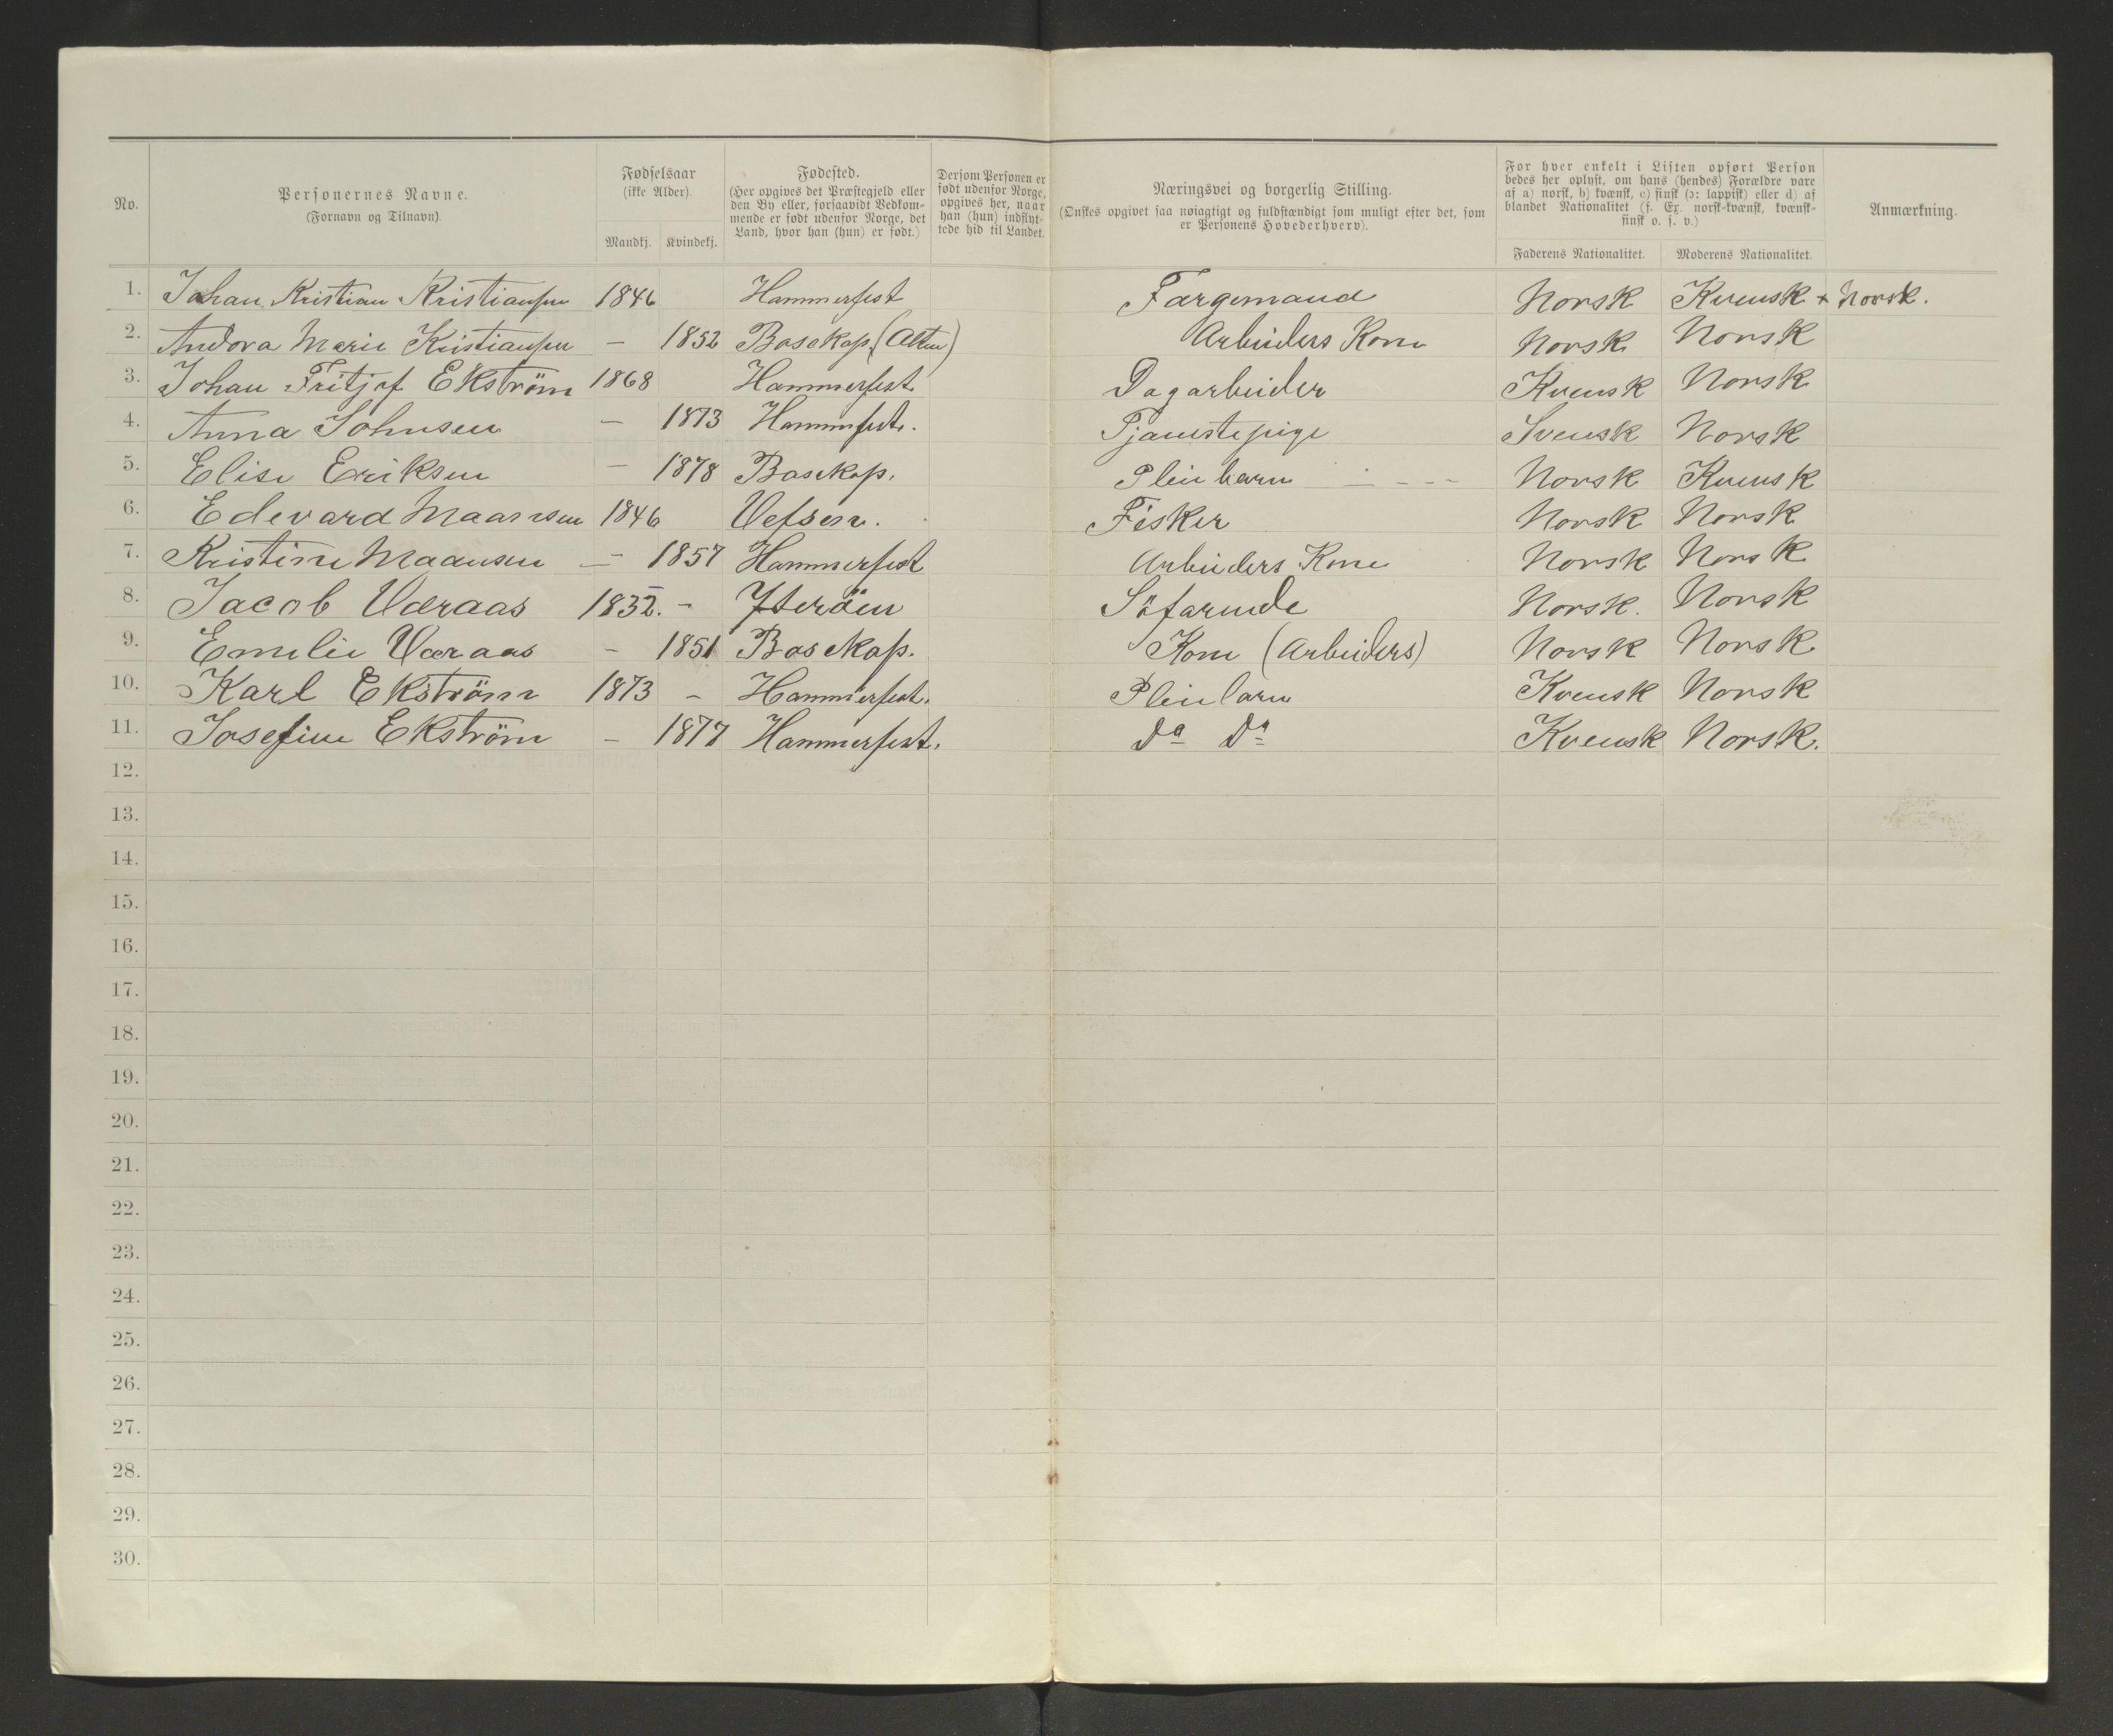 No.
Personernes Navne.
(Fornavn og Tilnavn).
Fødselsaar
(ikke Alder).
Mandkj. Kvindekj.
Fødested.
(Her opgives det Præstegjeld eller
den By eller, forsaavidt Vedkom-
mende er født udenfor Norge, det
Land, hvor han (hun) er født.)
Dersom Personen er
født udenfor Norge,
opgives her, naar
han (hun) indflyt-
tede hid til Landet.
Næringsvei og borgerlig Stilling.
(Ønskes opgivet saa nøiagtigt og fuldstændigt som muligt efter det, som
er Personens Hovederhverv).
For hver enkelt i Listen opført Person
bedes her oplyst, om hans (hendes) Forældre vare
af a) norsk, b) kvænsk, c) finsk (ɔ: lappisk) eller d) af
blandet Nationalitet (f. Ex. norsk-kvænsk, kvænsk-
finsk o. s. v.)
Faderens Nationalitet. Moderens Nationalitet.
Anmærkning.
1. Johan Kristian Kristiansen 1846 Hammerfest Fargemand Norsk Kvensk + Norsk.
2. Andora Marie Kristiansen — 1852 Bosekop (Alten) Arbeiders Kone Norsk Norsk
3. Johan Fritjof Ekström 1868 Hammerfest Dagarbeider Kvensk Norsk
4. Anna Johnsen — 1873 Hammfest. Tjenestepige Svensk Norsk
5. Elise Eriksen — 1878 Bosekop. Pleiebarn — - - - Norsk Kvensk
6. Edevard Maansen 1846 Vefsen. Fisker Norsk Norsk
7. Kristine Maansen — 1857 Hammerfest Arbeiders Kone Norsk Norsk
8. Jacob Væraas 1832. - Yterøen Söfarende Norsk. Norsk
9. Emelie Væraas - 1851 Bosekop. Kone (Arbeiders) Norsk Norsk
10. Karl Ekström 1873 - Hammerfest. Pleiebarn Kvensk Norsk
11. Josefine Ekström - 1877 Hammerfest. Do Do Kvensk Norsk.
12.
13.
14.
15.
16.
17.
18.
19.
20.
21.
22.
23.
24.
25.
26.
27.
28.
29.
30.